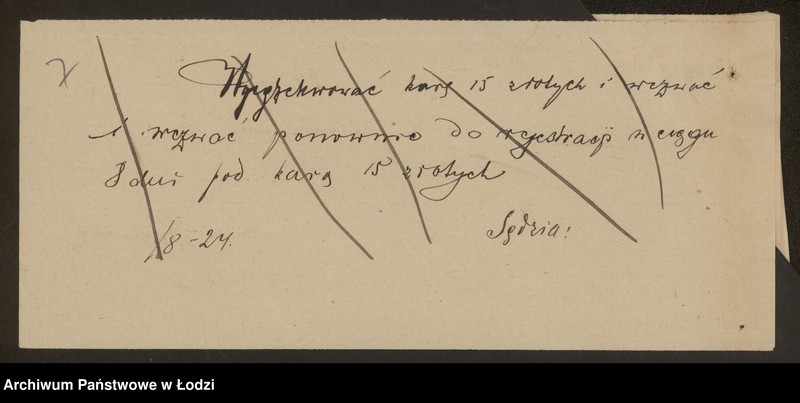 Wyegzekwować karę 15 złotych i wezwać
i wezwać ponownie do rejestracji w ciągu
8 dni pod karą 15 złotych
1/8-24.
Sędzia:
Archiwum Państwowe w Łodzi